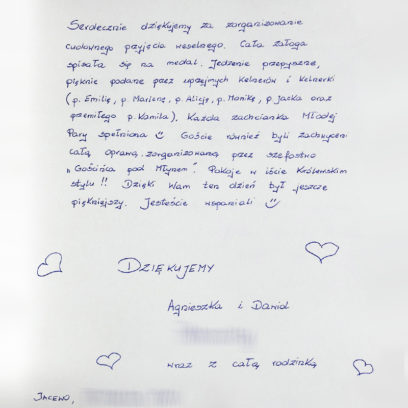 Serdecznie dziękujemy za zorganizowanie
cudownego przyjęcia weselnego. Cała załoga
spisała się na medal. Jedzenie przepyszne,
pięknie podane przez uprzejmych Kelnerów i Kelnerki
(p. Emilię, p. Marlenę, p. Alicję, p. Monikę, p. Jacka oraz
przemiłego p. Kamila). Każda zachcianka Młodej
Pary spełniona Goście również byli zachwyceni
całą oprawą zorganizowaną przez szefostwo
"Gościńca pod Młynem". Pokoje w iście Królewskim
stylu!! Dzięki Wam ten dzień był jeszcze
piękniejszy. Jesteście wspaniali
DZIĘKUJEMY
Agnieszka i Dawid
wraz z całą rodzinką
JACEWO,